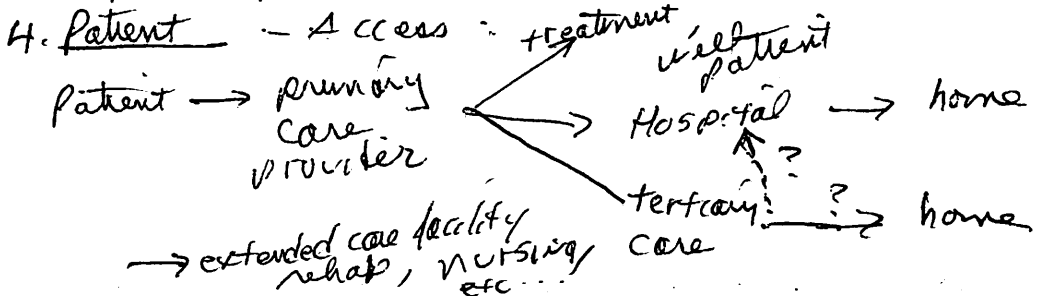 4. Patient - Access : treatment
well patient
Patient → primary care provider
Hospital → home
?
tertiary care
? → home
→ extended care facility
rehab, nursing,
etc...